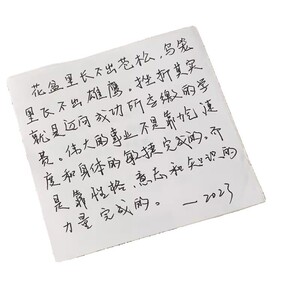 花盆里长不出苍松，鸟笼
里长不出雄鹰。挫折其实
就是迈向成功所应缴的学
费。伟大的事业不是靠力气，速
度和身体的敏捷完成的，而
是靠性格，意志和知识的
力量完成的。 —2023